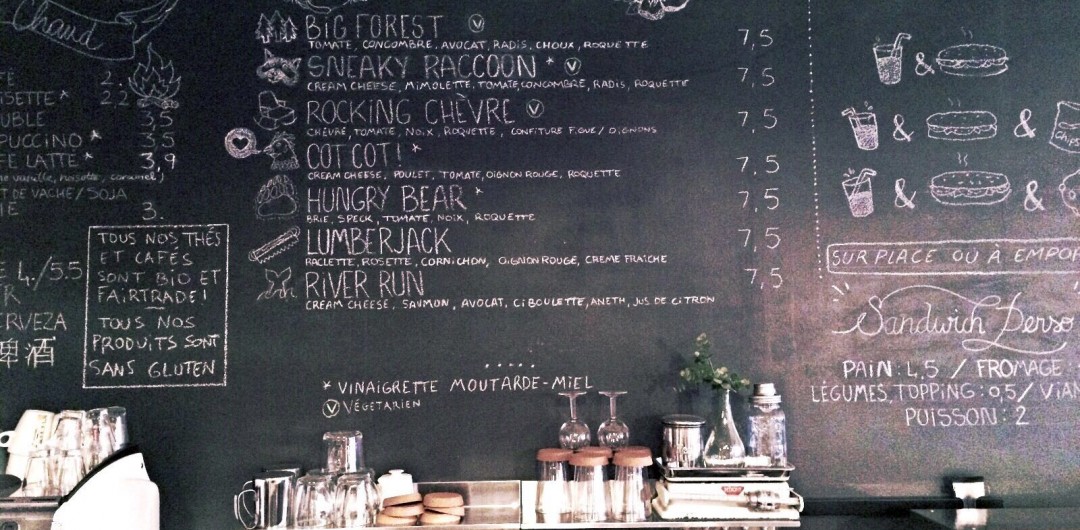 Chaud
2.
ISETTE* 2.2
UBLE 3,5
PUCCINO * 3,5
FE LATTE * 3,9
T DE VACHE/SOJA
3.
TOUS NOS THÉS
ET CAFÉS
SONT BIO ET
FAIRTRADE!
TOUS NOS
PRODUITS SONT
SANS GLUTEN
4./5.5
ERVEZA
啤酒
BIG FOREST V 7,5
TOMATE, CONCOMBRE, AVOCAT, RADIS, CHOUX, ROQUETTE
SNEAKY RACCOON * V 7,5
CREAM CHEESE, MIMOLETTE, TOMATE, CONCOMBRE, RADIS, ROQUETTE
ROCKING CHÈVRE V 7,5
CHÈVRE, TOMATE, NOIX, ROQUETTE, CONFITURE FIGUE/OIGNONS
COT COT! * 7,5
CREAM CHEESE, POULET, TOMATE, OIGNON ROUGE, ROQUETTE
HUNGRY BEAR * 7,5
BRIE, SPECK, TOMATE, NOIX, ROQUETTE
LUMBERJACK 7,5
RACLETTE, ROSETTE, CORNICHON, OIGNON ROUGE, CREME FRAÎCHE
RIVER RUN 7,5
CREAM CHEESE, SAUMON, AVOCAT, CIBOULETTE, ANETH, JUS DE CITRON
* VINAIGRETTE MOUTARDE-MIEL
V VÉGÉTARIEN
&
& & Chips
& &
SUR PLACE OU À EMPOR
Sandwich Perso
PAIN: 4,5 / FROMAGE :
LÉGUMES, TOPPING: 0,5/ VIAN
PUISSON: 2